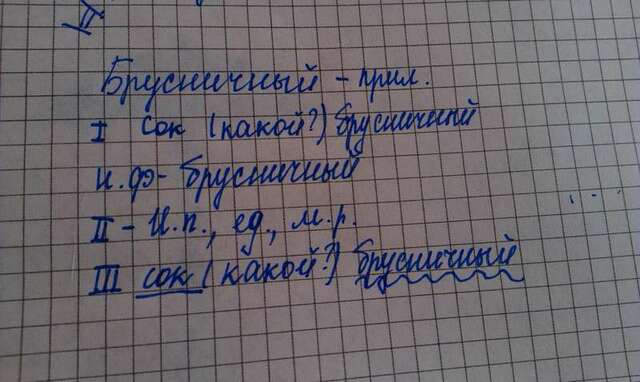 II
Брусничный - прил.
I сок (какой?) брусничный
н.ф - брусничный
II - И.п., ед., м.р.
III сок (какой?) брусничный